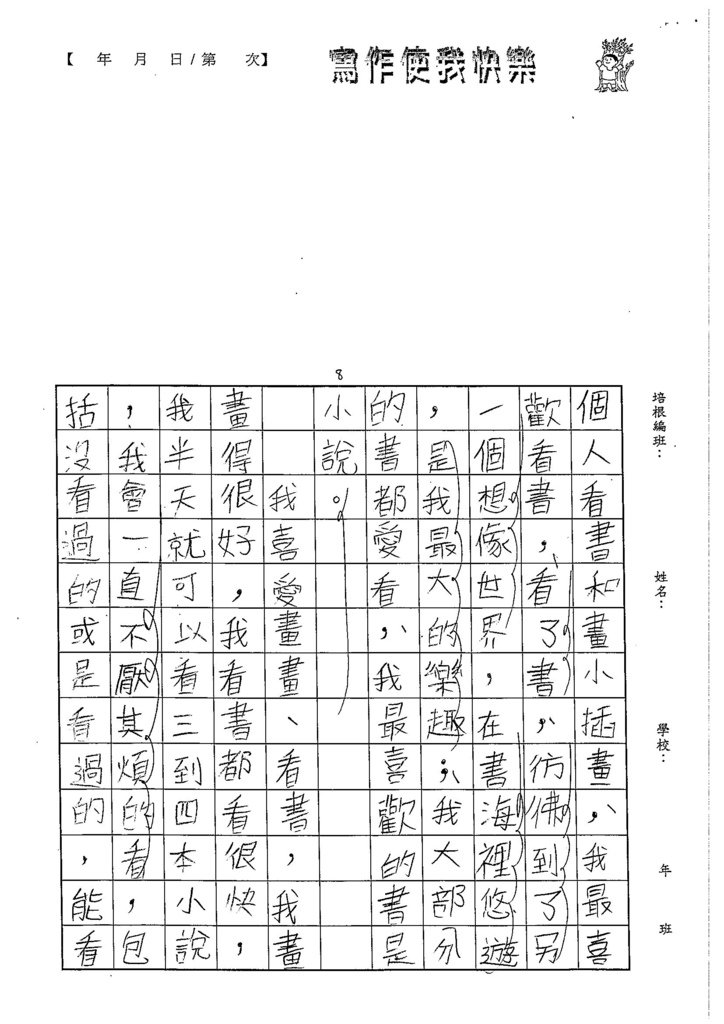 【 年 月 日/第 次】
寫作使我快樂
培根編班：
姓名：
學校：
年 班
8
個人看書和畫小插畫，我最喜
歡看書，看了書，彷佛到了另
一個想像世界，在書海裡悠遊
，是我最大的樂趣；我大部分
的書都愛看，我最喜歡的書是
小說。
我喜愛畫畫、看書，我畫
畫得很好，我看書都看很快，
我半天就可以看三到四本小說
，我會一直不厭其煩的看，包
括沒看過的或是看過的，能看